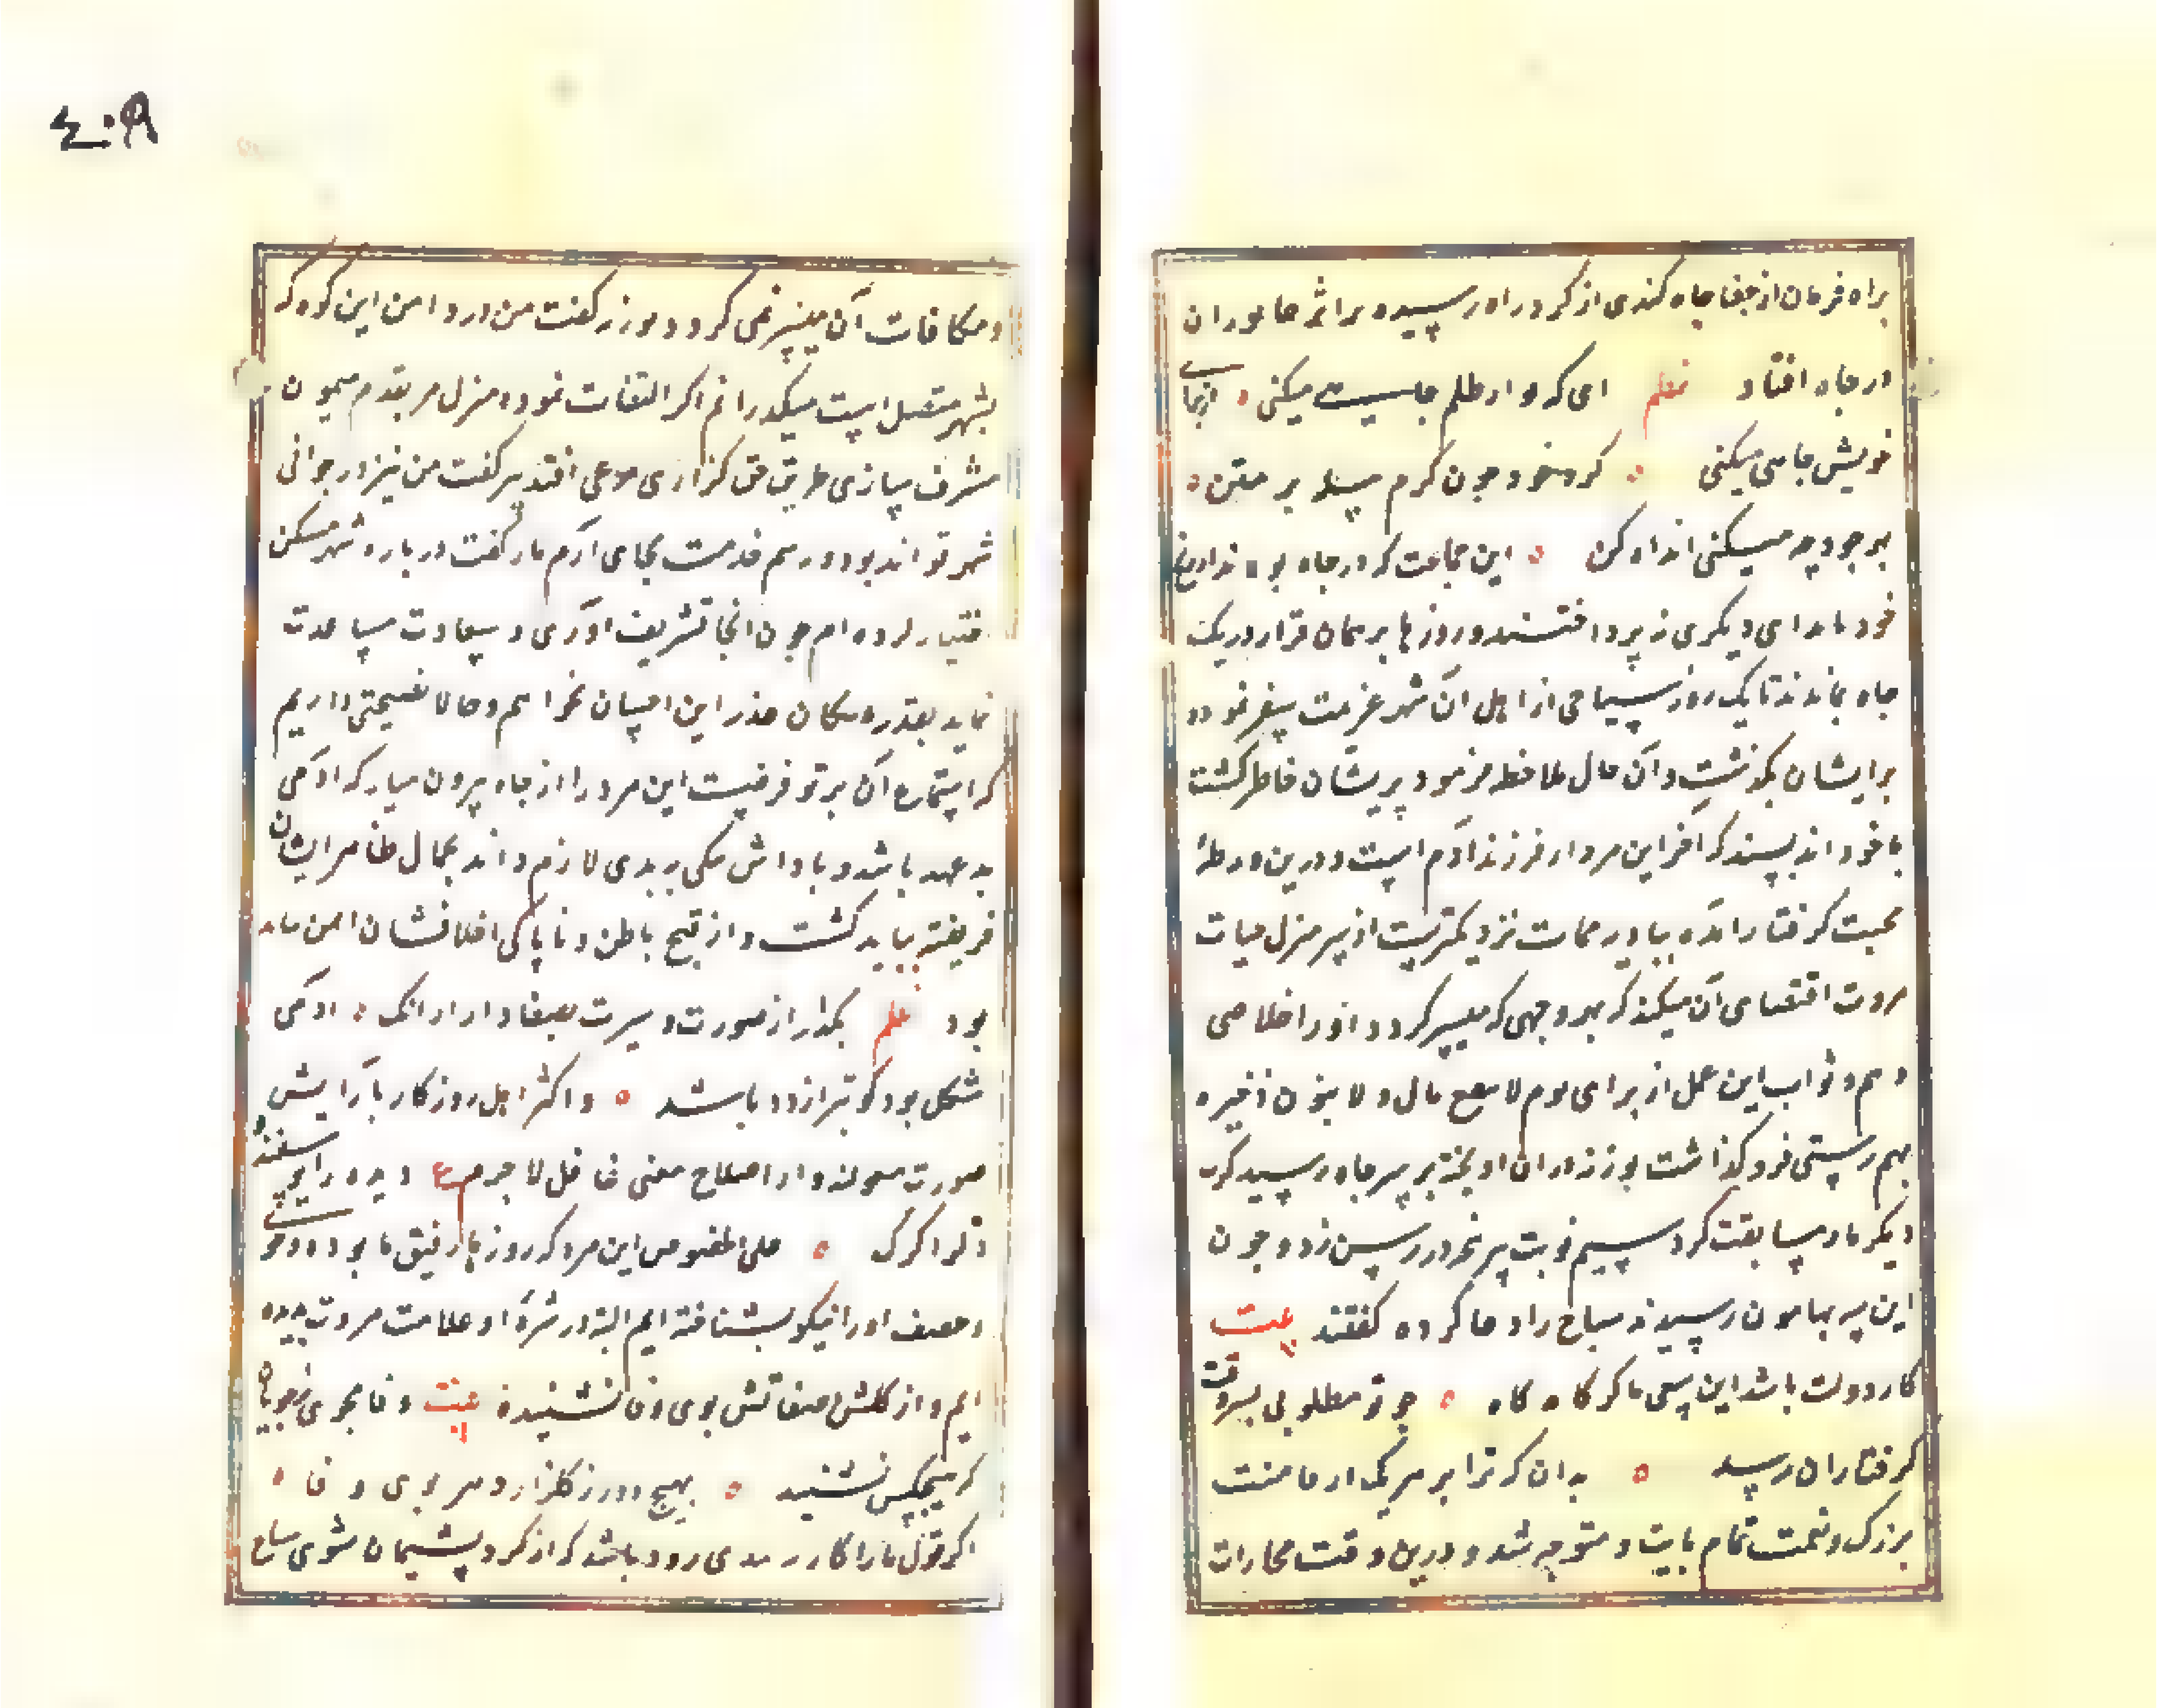 ٤٠٩
براه فرمان از جفا چاه کندی از کرد راه رسیده بر اثر جانوران
در چاه افتاد نظم ای که تو از ظلم چاهی میکنی ه از برای
خویش چاهی میکنی ه کرد خود چون کرم پیله بر متن ه
بهر خود چه میکنی اندازه کن ه این جماعت که در چاه بودند از رنج
خود بایذای دیکری نپرداختند و روزها برهمان قرار در یک
چاه بماندند تا یک روز سیاحی از اهل آن شهر عزیمت سفر نموده
برایشان بکذشت و آن حال ملاحظه فرمود پریشان خاطر کشت
با خود اندیشید که آخر این مرد از فرزند آدم است و درین ورطهٔ
محنت کرفتار آمده بیا در ممات نزدیکترست از سر منزل حیات
مروت اقتضای آن میکند که بهر وجهی که میسر کردد او را خلاصی
دهم و ثواب این عمل از برای یوم لا ینفع مال و لا بنون ذخیره
نهم رستی فرو کذاشت بوزنه در آن آویخته بر سر چاه رسید کرت
دیکر مار مسابقت کرد سیم نوبت ببر نحو در رسن زد و چون
این سه بهامون رسیدند سیاح را دعا کرده کفتند بیت
کار دولت باشد این سعی ما که کاه کاه ه چو تو مطلوبی بسر وقت
کرفتاران رسد ه بدان که ترا بر هر یک از ما منت
بزرک و نعمت تمام ثابت و متوجه شد و درین وقت مجازات
و مکافات آن میسر نمی کردد بوزنه کفت من در دامن این کوه که
بشهر متصل است میکذرانم اکر التفات نموده منزل مرا بقدم میمون
مشرف سازی طریق حق کزاری مرعی افتد ببر کفت من نیز در حوالی
شهر توانم بود و رسم خدمت بجای آرم مار کفت در باره شهر مسکن
اختیار کرده ام چون آنجا تشریف آوری و سعادت مساعدت
نماید بقدر امکان عذر این احسان بخواهم و حالا نصیحتی داریم
که استماع آن بر تو فرضیست این مرد را از چاه بیرون میار که آدمی
بد عهد باشد و پاداش نیکی ببدی لازم داند بجمال ظاهر ایشان
فریفته نباید کشت و از قبح باطن و ناپاکی اخلاقشان ایمن نباید
بود نظم بکذار از صورت و سیرت بصفا دار از آنک ه آدمی
شکل بود کو بتر از دد باشد ه و اکثر اهل روزکار بآرایش
صورت مشغولند و از اصلاح معنی غافل لاجرم ع دیده را یوسفند و
دل را کرک ه علی الخصوص این مرد که روزها رفیق ما بوده و خوی
و صفت او را نیکو بشناخته ایم البته در شره او علامت مروت ندیده
ایم و از کلشن صفاتش بوی وفا نشنیده بیت وفا مجوی ز خوبان
که هیچکس نشنید ه بهیچ دور ز کلزار دهر بوی وفا ه
اکر قول ما را کار نبندی روزی باشد که از کرده پشیمان شوی سیاح